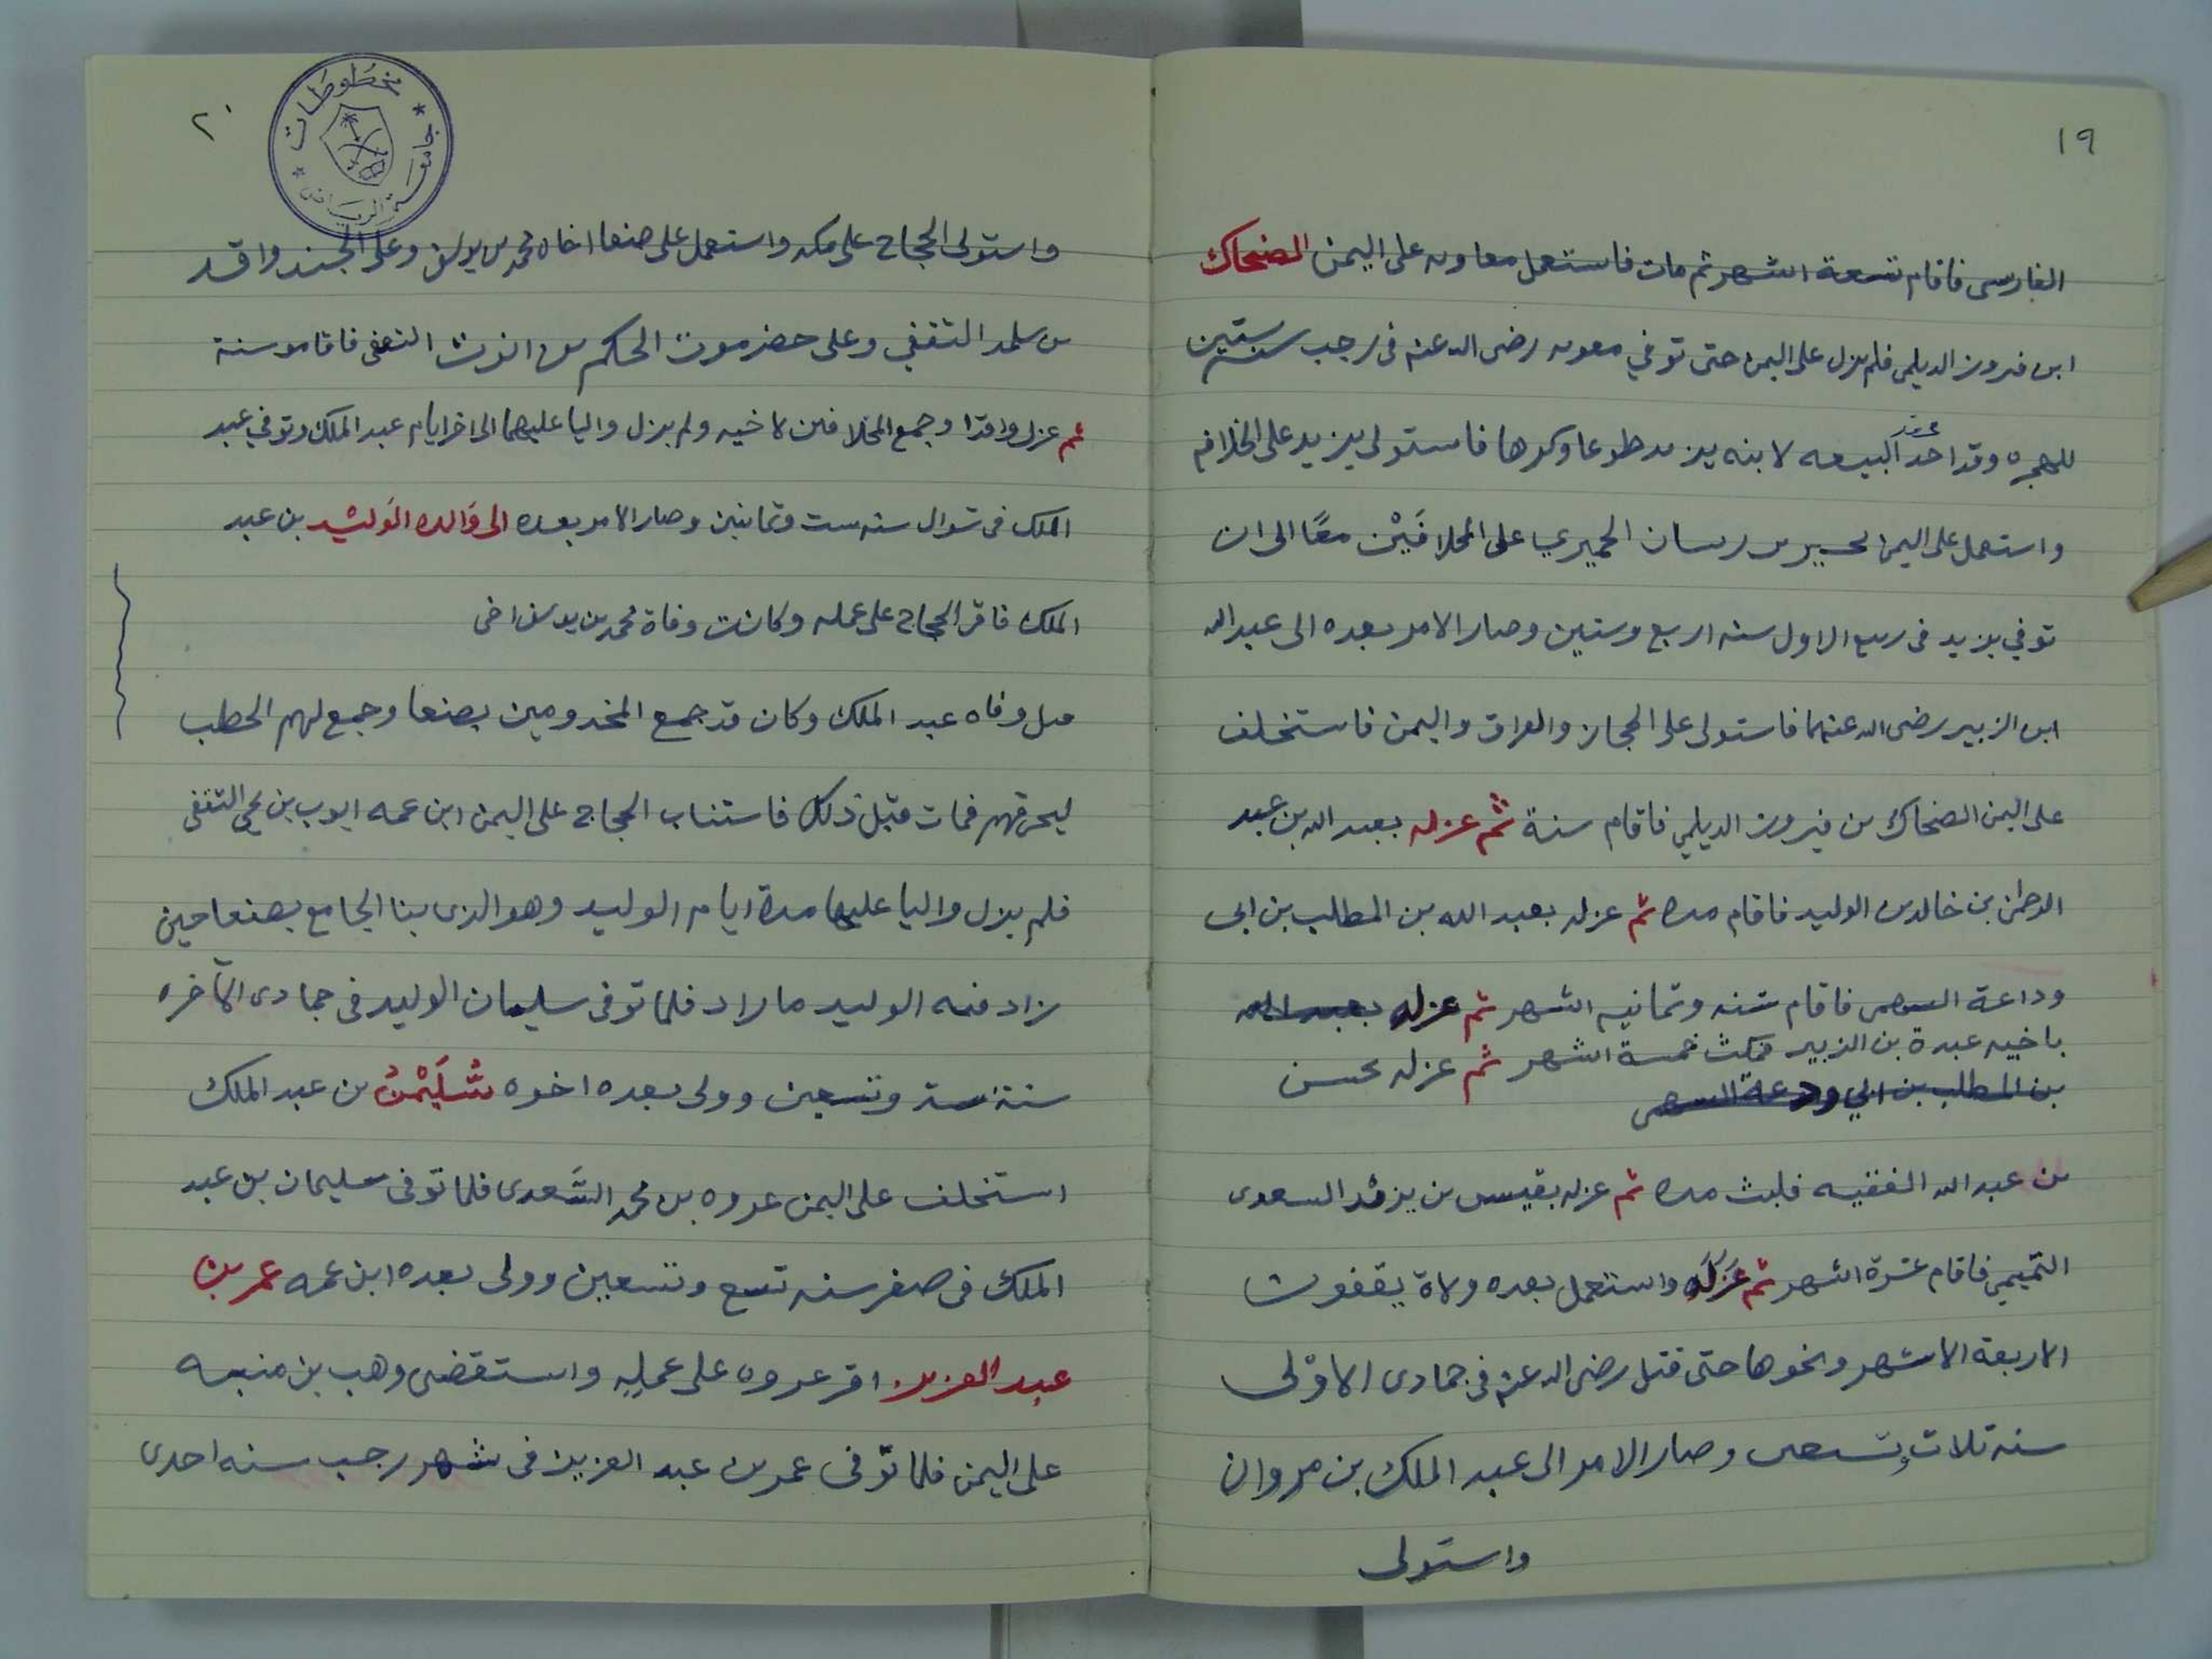 ١٩
الفارسى فاقام تسعة اشهر ثم مات فاستعمل معاويه على اليمن الضحاك
ابن فيروز الديلمي فلم يزل على اليمن حتى توفي معويه رضى الله عنه فى رجب سنه ستين
للهجره وقد اخذ البيعه لابنه يزيد طوعا وكرها فاستولى يزيد على الخلافه
واستعمل على اليمن بحير بن ريسان الحميري على المخلافَيْن معًا الى ان
توفي يزيد فى ربيع الاول سنه اربع وستين وصار الامر بعده الى عبد الله
ابن الزبير رضى الله عنهما فاستولى على الحجاز والعراق واليمن فاستخلف
على اليمن الضحاك بن فيروز الديلمي فاقام سنة ثم عزله بعبد الله بن عبد
الرحمن بن خالد بن الوليد فاقام مده ثم عزله بعبد الله بن المطلب بن ابى
وداعة السهمى فاقام سنه وثمانيه اشهر ثم عزله بعبد الله
باخيه عبدة بن الزبير فمكث خمسة اشهر ثم عزله بحسن
بن المطلب بن ابي ودعة السهمى
بن عبد الله الفقيه فلبث مده ثم عزله بقيس بن يزيد السعدى
التميمي فاقام عشرة اشهر ثم عَزَلَه واستعمل بعده ولاة يقفون
الاربعة الاشهر ونحوها حتى قتل رضى الله عنه فى جمادى الاوّلى
سنه ثلاث وسبعين وصار الامر الى عبد الملك بن مروان
واستولى
٢٠
مخطوطات
جامعة الرياض
واستولى الحجاج على مكه واستعمل على صنعا اخاه محمد بن يوسف وعلى الجند واقد
بن سلمه الثقفي وعلى حضرموت الحكم بن الثقفى فاقاموسنة
ثم عزل واقدا وجمع المخلافين لاخيه ولم يزل واليا عليهما الى اخر ايام عبد الملك وتوفي عبد
الملك فى شوال سنه ست وثمانين وصار الامر بعده الى وَالده الوَليد بن عبد
الملك فاقر الحجاج على عمله وكانت وفاة محمد بن يوسف اخى
قبل وفاه عبد الملك وكان قد جمع المخدومين بصنعا وجمع لهم الحطب
ليحرقهم فمات قبل ذلك فاستناب الحجاج على اليمن ابن عمه ايوب بن يحي الثقفى
فلم يزل واليا عليها مدة ايام الوليد وهو الذى بنا الجامع بصنعا حين
زاد فيه الوليد ما زاد فلما توفى سليمان الوليد فى جمادى الآخره
سنة ست وتسعين وولى بعده اخوه سُلَيْمنُ بن عبد الملك
استخلف على اليمن عروه بن محمد السَّعدى فلما توفى سليمان بن عبد
الملك فى صفر سنه تسع وتسعين وولى بعده ابن عمه عمر بن
عبد العزيز اقر عروه على عمله واستقضى وهب بن منبه
على اليمن فلما توّفى عمر بن عبد العزيز فى شهر رجب سنه احدى